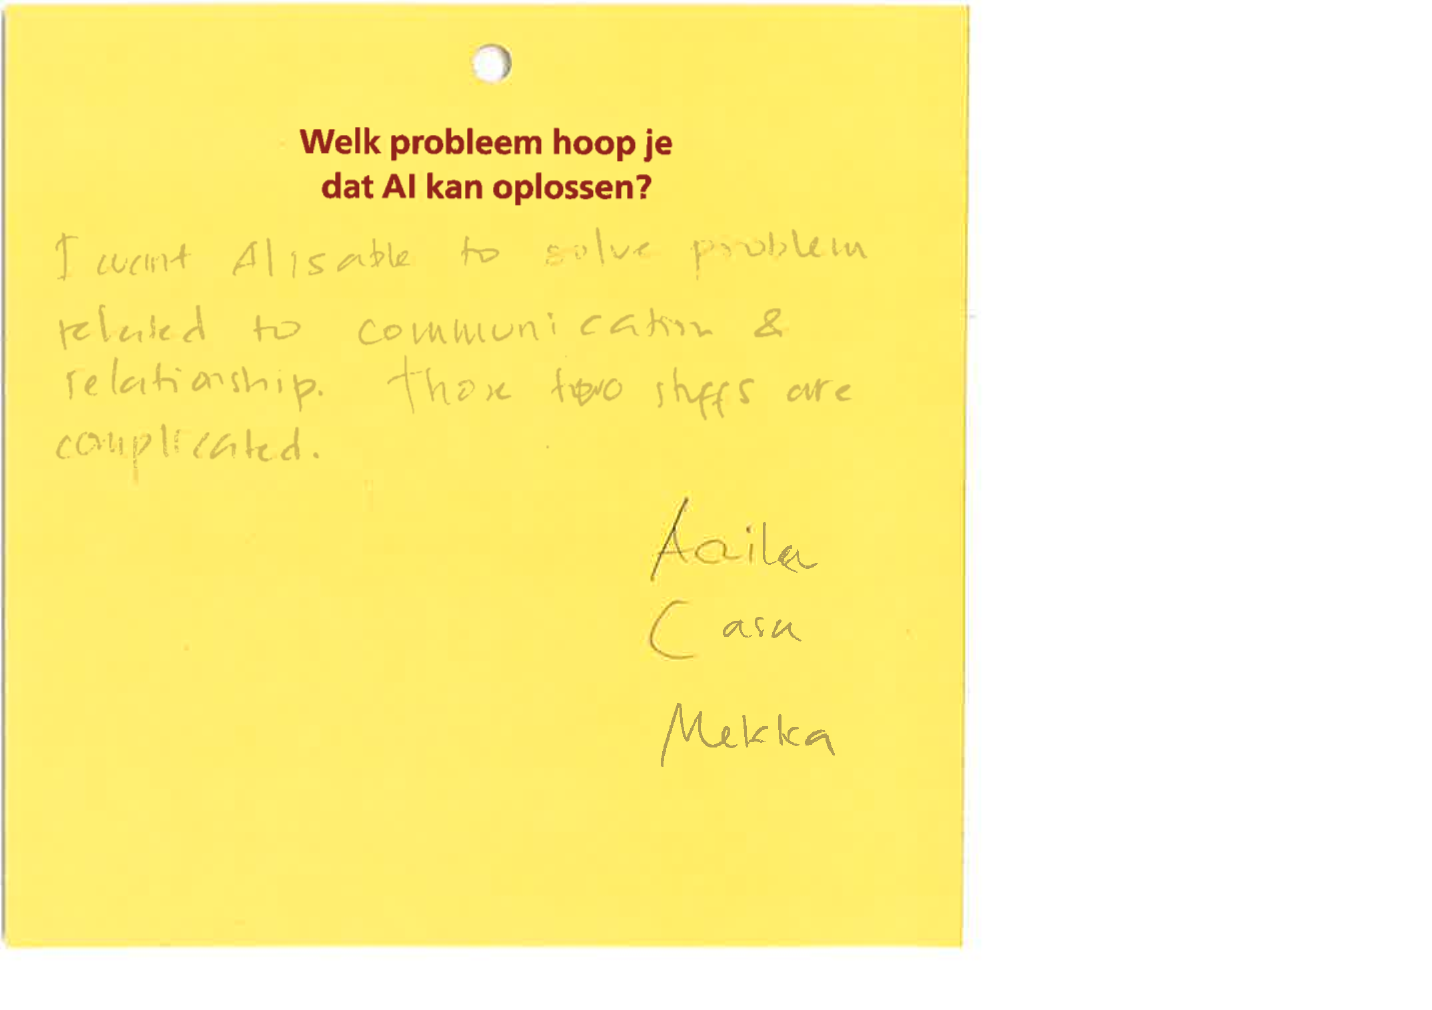 Welk probleem hoop je
dat AI kan oplossen?
I want AI is able to solve problem
related to communication &
relationship. Those two stuffs are
complicated.
Aaila
Casa
Mekka